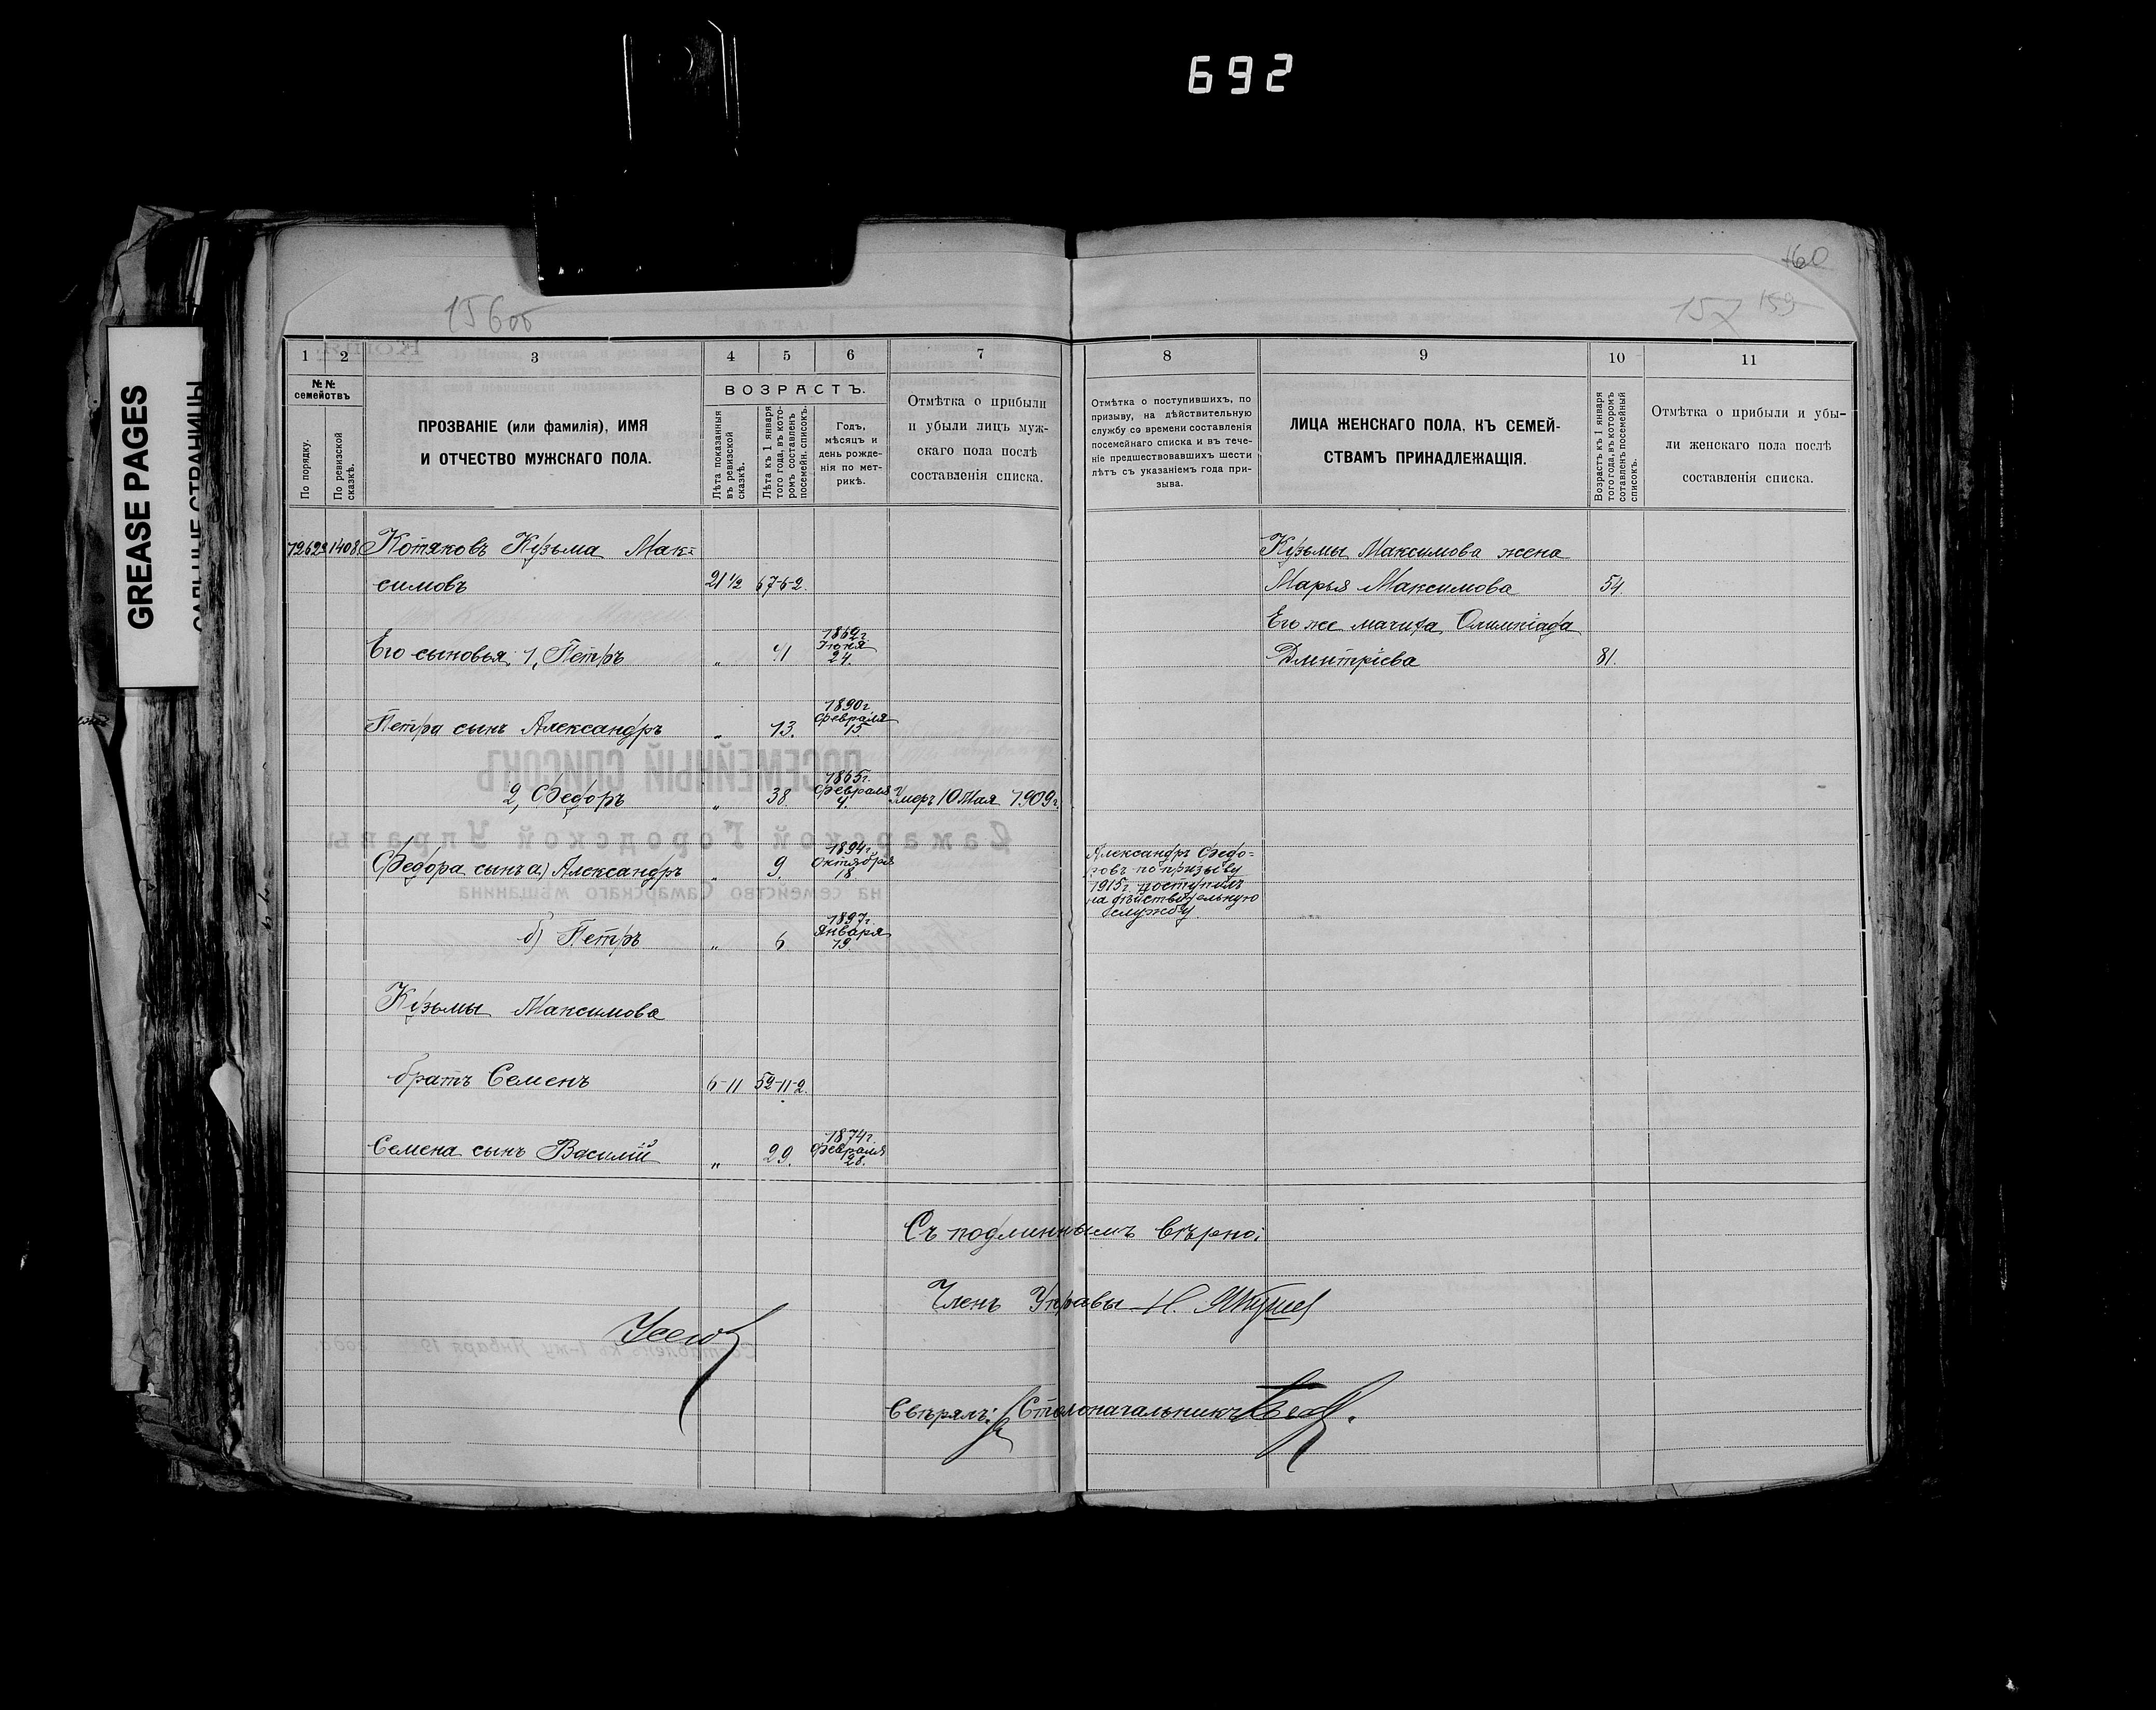 692
GREASE PAGES
САЛЬНЫЕ СТРАНИЦЫ
156об
160
157 159
1 2 3 4 5 6 7 8 9 10 11
№№ семействъ
По порядку.
По ревизской сказкѣ.
ПРОЗВАНІЕ (или фамилія), ИМЯ
И ОТЧЕСТВО МУЖСКАГО ПОЛА.
ВОЗРАСТЪ.
Лѣта показанныя
въ ревизской
сказкѣ.
Лѣта къ 1 января
того года, въ кото-
ромъ составленъ
посемейн. списокъ.
Годъ,
мѣсяцъ и
день рожде-
нія по мет-
рикѣ.
Отмѣтка о прибыли
и убыли лицъ муж-
скаго пола послѣ
составленія списка.
Отмѣтка о поступившихъ, по
призыву, на дѣйствительную
службу со времени составленія
посемейнаго списка и въ тече-
ніе предшествовавшихъ шести
лѣтъ съ указаніемъ года при-
зыва.
ЛИЦА ЖЕНСКАГО ПОЛА, КЪ СЕМЕЙ-
СТВАМЪ ПРИНАДЛЕЖАЩІЯ.
Возрастъ къ 1 января
того года, въ которомъ
сотавленъ посемейный
списокъ.
Отмѣтка о прибыли и убы-
ли женскаго пола послѣ
составленія списка.
1408 Котяковъ Кузьма Мак=
симовъ 21½ 67-6-2.
Его сыновья: 1, Петръ „ 41 Іюня 24.
Петра сынъ Александръ „ 13. 1890г. Февраля 15
2, Федоръ „ 38 1865г. Февраля 4. Умеръ 10 Мая 1909г.
Федора сынъ а) Александръ „ 9. 1894г. Октября 18
б) Петръ „ 6 1897г. Января 19.
Кузьмы Максимова
братъ Семенъ 6-11 52-11-2.
Семена сынъ Василій „ 29. 1874г. Февраля 28.
Александръ Федо=
ровъ по призыву
1915г. поступилъ
на дѣйствительную
службу
Кузьмы Максимова жена
Марья Максимова 54.
Его же мачиха Олимпіада
Дмитріева 81.
Съ подлиннымъ вѣрно:
Членъ Управы Н.
Свѣрялъ: Столоначальникъ
ПОСЕМЕЙНЫЙ СПИСОКЪ
Самарской Городской Управы
на семейство Самарскаго мѣщанина